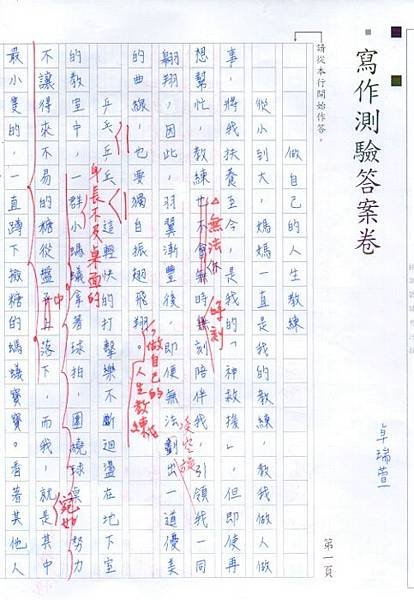 寫作測驗答案卷
卓瑞萱
第一頁
請從本行開始作答。
做自己的人生教練
從小到大,媽媽一直是我的教練,教我做人做
事,將我扶養至今,是我的「神救援」,但即使再
想幫忙,教練也不會無時無刻陪伴我,引領我一同
無法
時刻
翱翔,因此,羽翼漸豐後,即便無法劃出一道優美
的曲線,也要獨自振翅飛翔。
做自己的
人生教練
乒乓乒乓,這輕快的打擊樂不斷迴盪在地下室
的教室中,一群小螞蟻拿著球拍,圍繞球桌努力
身長不及桌面的
不讓得來不易的糖從盤子上落下,而我,就是其中
中
宛如
最小隻的,一直蹲下撿糖的螞蟻寶寶。看著其他人